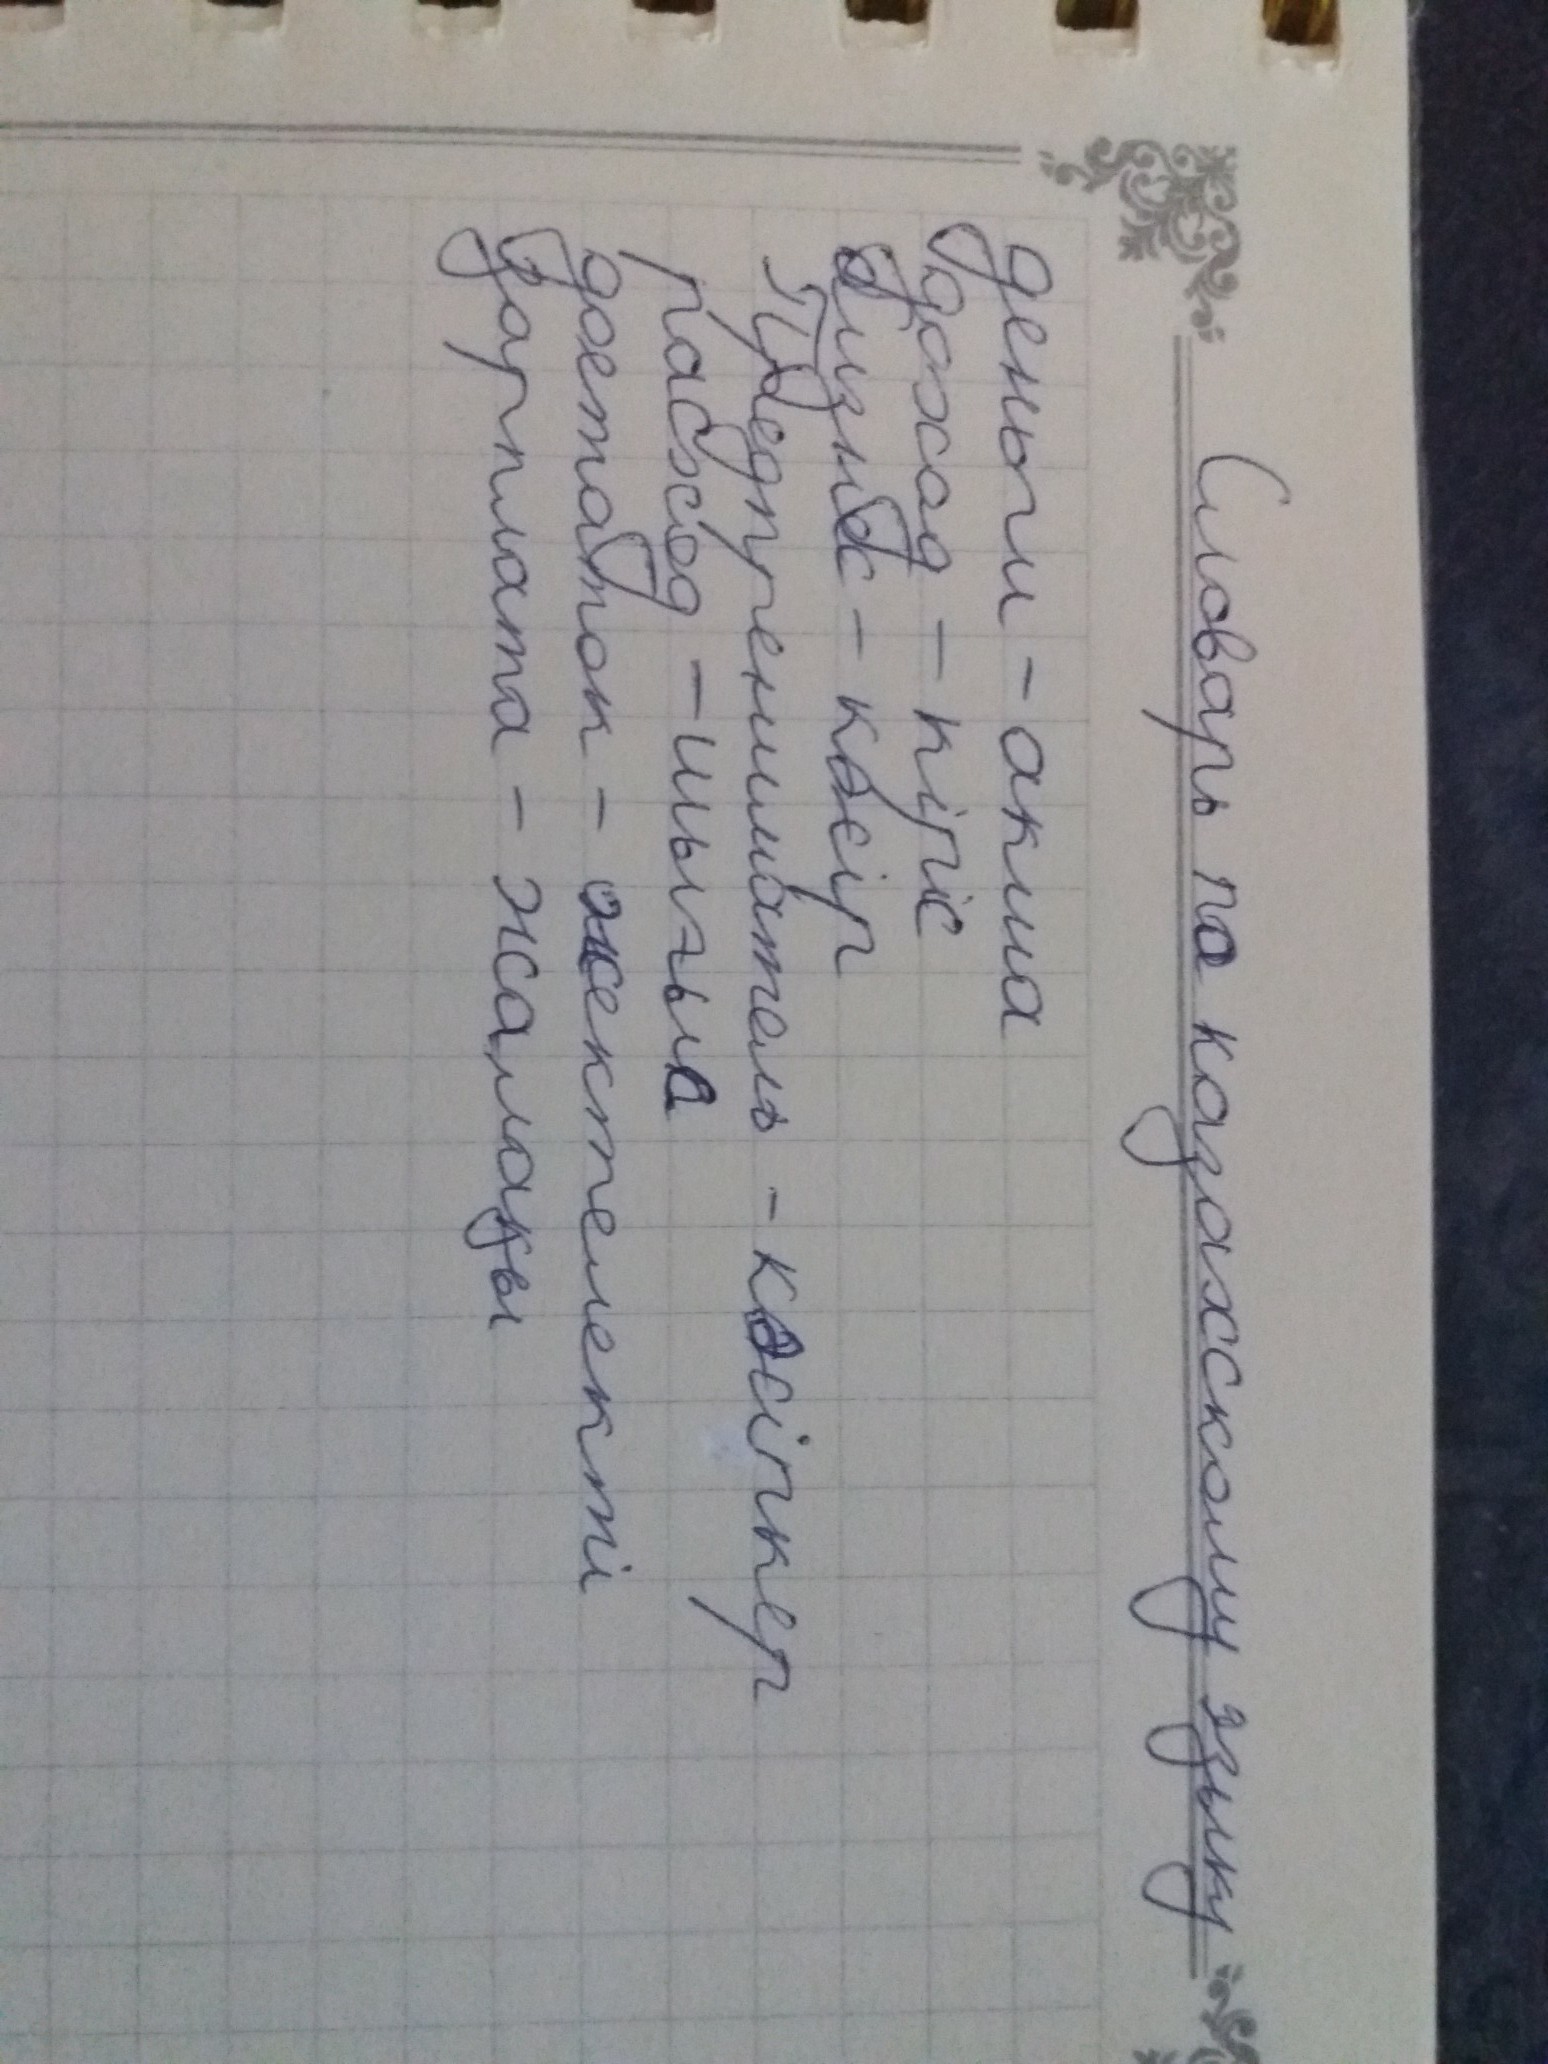 Словарь по казахскому языку
деньги - акша
доход - кіріс
бизнес - кәсіп
Предприниматель - кәсіпкер
расход - шығыс
достаток - жектелекті
зарплата - жалақы